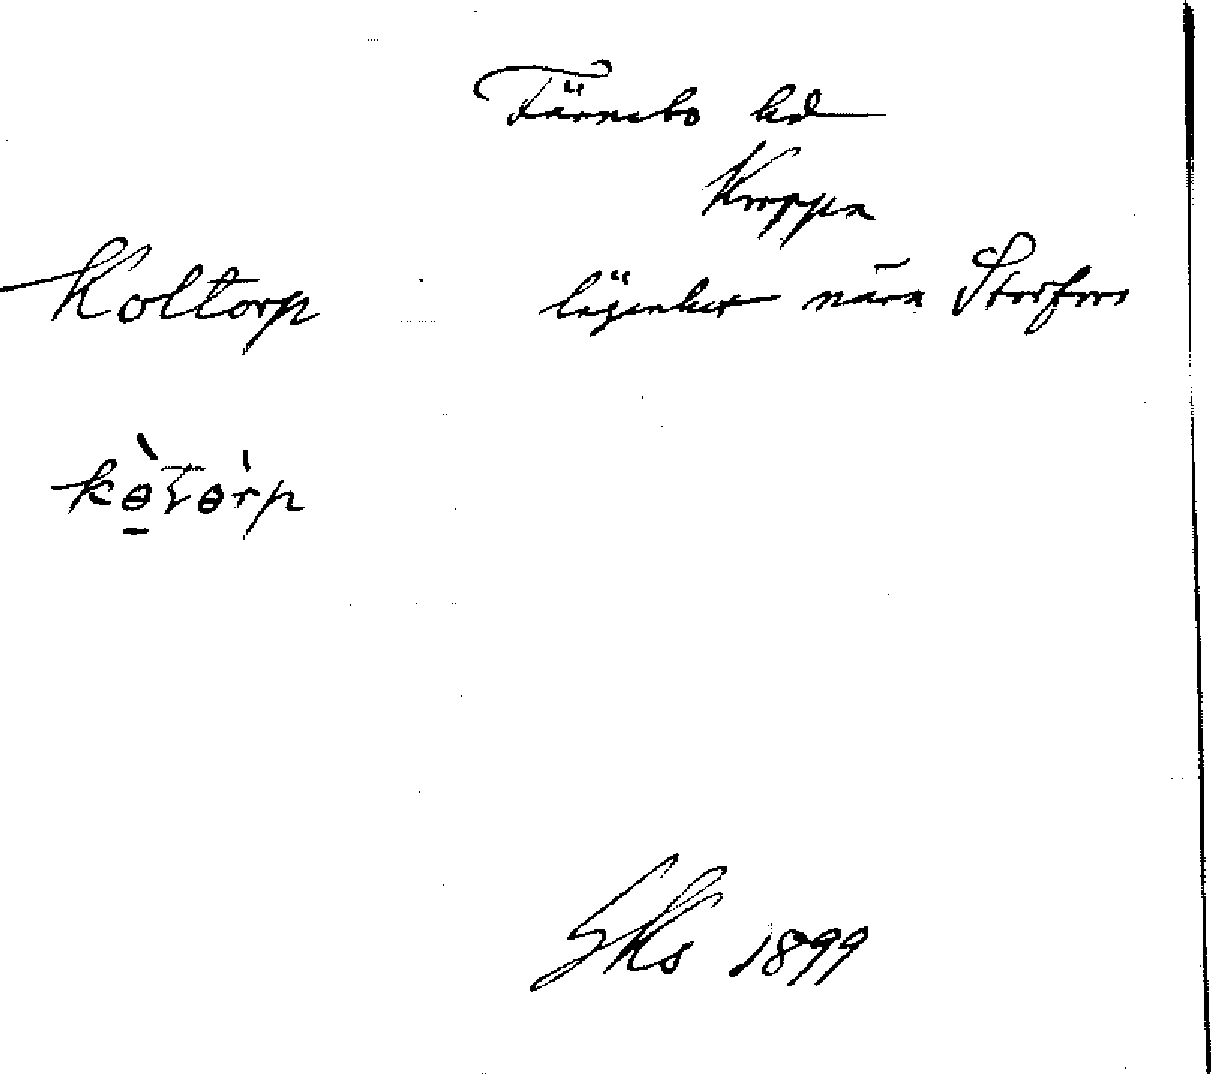 Färnebo hd
Kroppa
Koltorp lägenhet nära Storfors
kɵ̠̀tɵ̀rp
SKs 1899